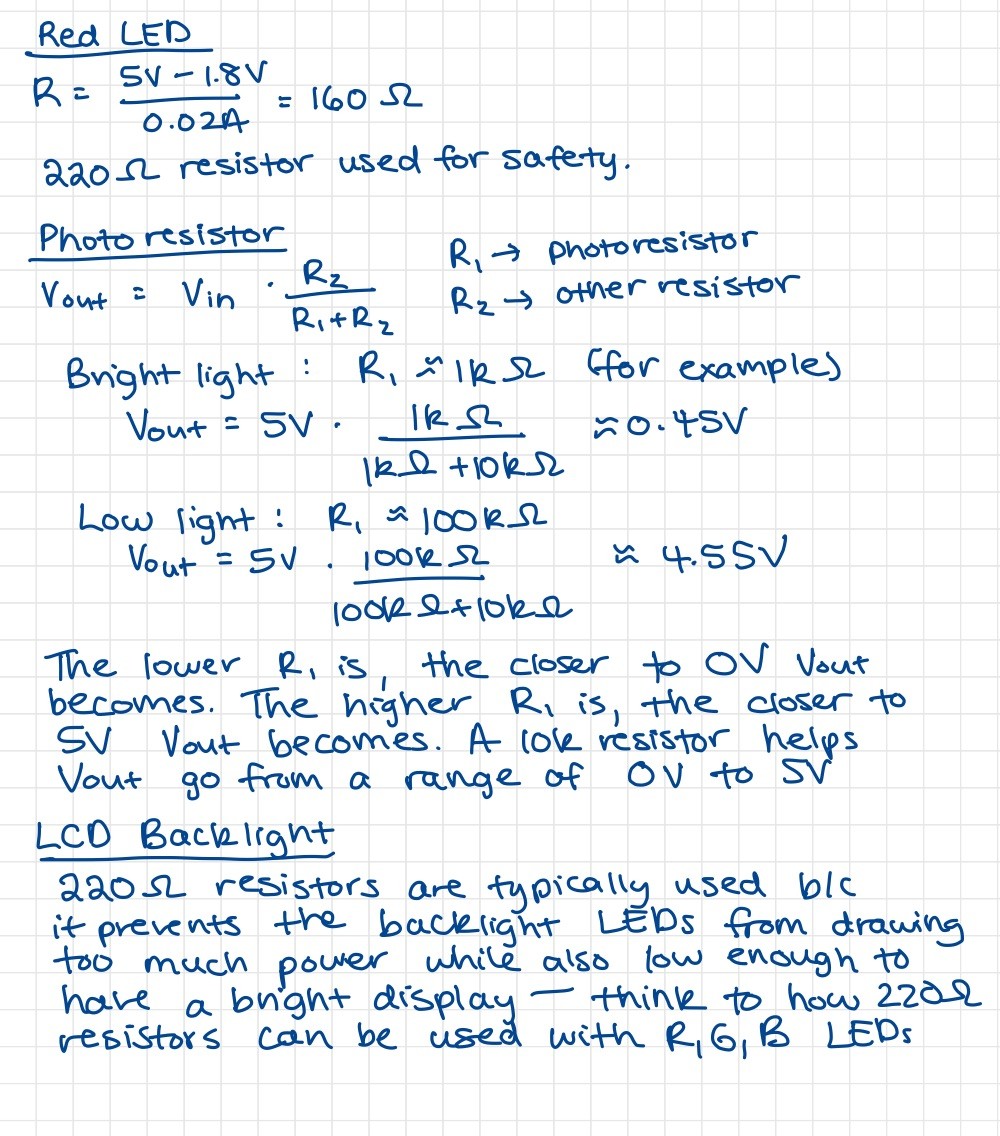 Red LED
R = 5V - 1.8V / 0.02A = 160 Ω
220 Ω resistor used for safety.
Photoresistor
Vout = Vin · R2 / R1 + R2
R1 → photoresistor
R2 → other resistor
Bright light : R1 ≈ 1k Ω (for example)
Vout = 5V · 1k Ω / 1k Ω + 10k Ω ≈ 0.45V
Low light : R1 ≈ 100k Ω
Vout = 5V · 100k Ω / 100k Ω + 10k Ω ≈ 4.55V
The lower R1 is, the closer to 0V Vout
becomes. The higher R1 is, the closer to
5V Vout becomes. A 10k resistor helps
Vout go from a range of 0V to 5V
LCD Backlight
220 Ω resistors are typically used b/c
it prevents the backlight LEDs from drawing
too much power while also low enough to
have a bright display — think to how 220 Ω
resistors can be used with R, G, B LEDs